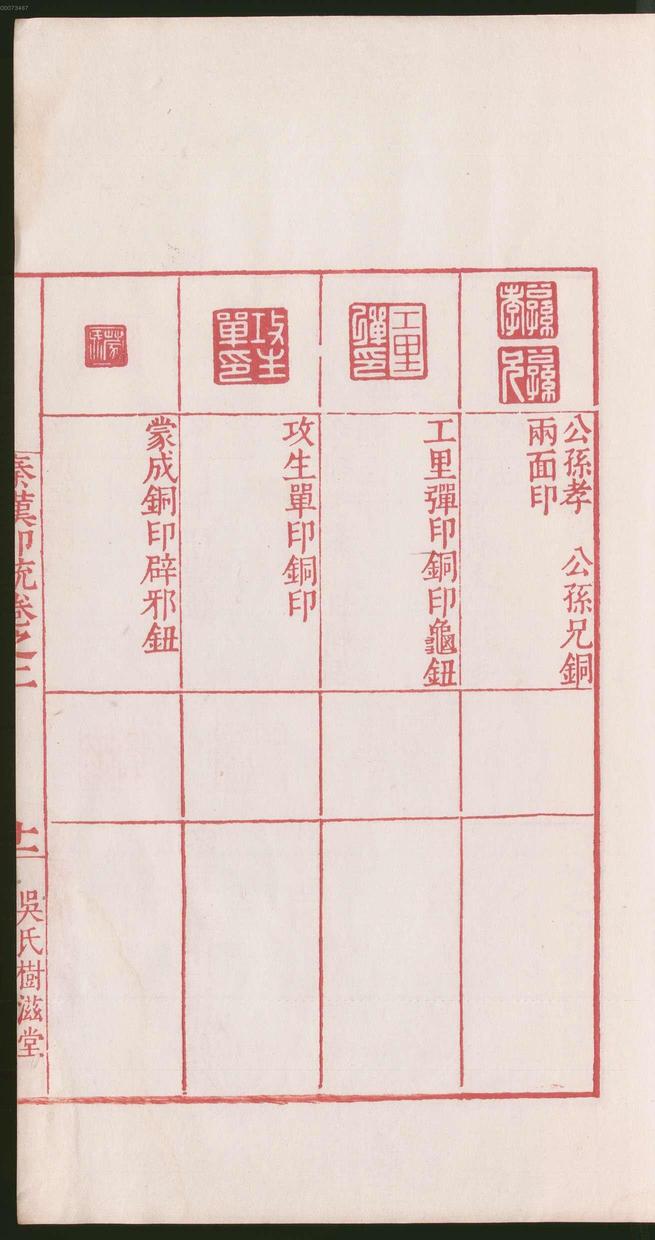 00073467
公孫孝　公孫兄銅
兩面印
工里彈印銅印龜鈕
攻生單印銅印
蒙成銅印辟邪鈕
秦漢印統卷之二
十二
吳氏樹滋堂